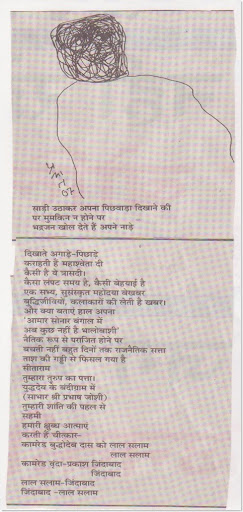 साड़ी उठाकर अपना पिछवाड़ा दिखाने की
पर मुमकिन न होने पर
भद्रजन खोल देते हैं अपने नाड़े
दिखाते अगाड़े-पिछाड़े
कराहती है महाश्वेता दी
कैसी है ये त्रासदी।
कैसा लंपट समय है, कैसी बेहयाई है
एक सभ्य, सुसंस्कृत महोदया बेखबर
बुद्धिजीवियों, कलाकारों की लेती है खबर।
और क्या बताएं हाल अपना
'आमार सोनार बंगाल में
अब कुछ नहीं है भालोबाशी'
नैतिक रूप से पराजित होने पर
बचती नहीं बहुत दिनों तक राजनैतिक सत्ता
ताश की गड्डी से फिसल गया है
सीताराम
तुम्हारा तुरुप का पत्ता।
युद्धदेव के बंदीग्राम में
(साभार श्री प्रभाष जोशी)
तुम्हारी शांति की पहल से
सहमी
हमारी क्षुब्ध आत्माएं
करती हैं चीत्कार-
कामरेड बुद्धोदेव दास को लाल सलाम
लाल सलाम
कामरेड वृंदा-प्रकाश जिंदाबाद
जिंदाबाद
लाल सलाम-जिंदाबाद
जिंदाबाद -लाल सलाम